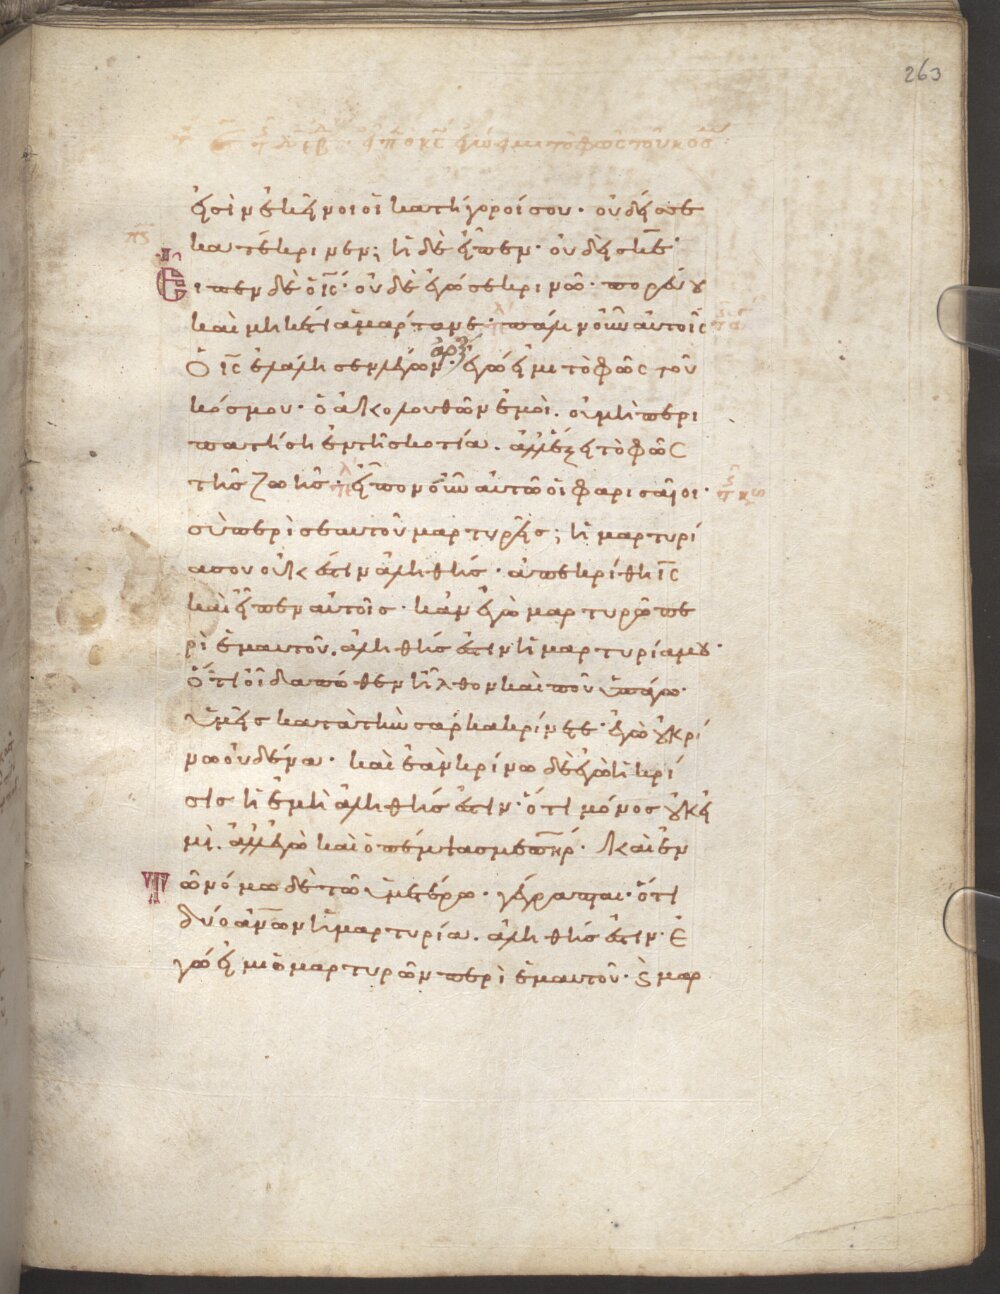 263
εἰσὶν ἐκεῖνοι οἱ κατήγοροί σου· οὐδείς σε
κατέκρινεν; ἡ δὲ εἶπεν· οὐδεὶς κε̅·
Εἶπεν δὲ ὁ ις̅· οὐδὲ ἐγώ σε κρινῶ· πορεύου
καὶ μηκέτι ἁμάρτανε· πάλιν οὖν αὐτοῖς
Ὁ ις̅ ἐλάλησεν λέγων· ἐγώ εἰμι τὸ φῶς τοῦ
κόσμου· ὁ ἀκολουθῶν ἐμοὶ. οὐ μὴ περι
πατήσῃ ἐν τῇ σκοτία. ἀλλ' ἕξει τὸ φῶς
τῆς ζωῆς· εἶπον οὖν αὐτῶ οἱ φαρισαῖοι·
σὺ περὶ σεαυτοῦ μαρτυρεῖς; ἡ μαρτυρί
α σου οὐκ ἔστιν ἀληθής· ἀπεκρίθη ις̅
καὶ εἶπεν αὐτοῖς· κἂν ἐγὼ μαρτυρῶ πε
ρὶ ἐμαυτοῦ. ἀληθής ἐστιν ἡ μαρτυρία μου·
ὅτι οἶδα πόθεν ἦλθον καὶ ποῦ ὑπάγω·
ὑμεῖς κατὰ τὴν σάρκα κρίνετε· ἐγὼ οὐ κρί
νω οὐδένα· καὶ ἐὰν κρίνω δὲ ἐγὼ ἡ κρί
σις ἡ ἐμὴ ἀληθής ἐστιν· ὅτι μόνος οὐκ εἰ
μὶ. ἀλλ' ἐγὼ καὶ ὁ πέμψας με πη̅ρ· Καὶ ἐν
Τῶ νόμω δὲ τῶ ὑμετέρω· γέγραπται· ὅτι
δύο αν̅ων ἡ μαρτυρία. ἀληθής ἐστιν· Ἐ
γώ εἰμι ὁ μαρτυρῶν περὶ ἐμαυτοῦ· ϗ μαρ